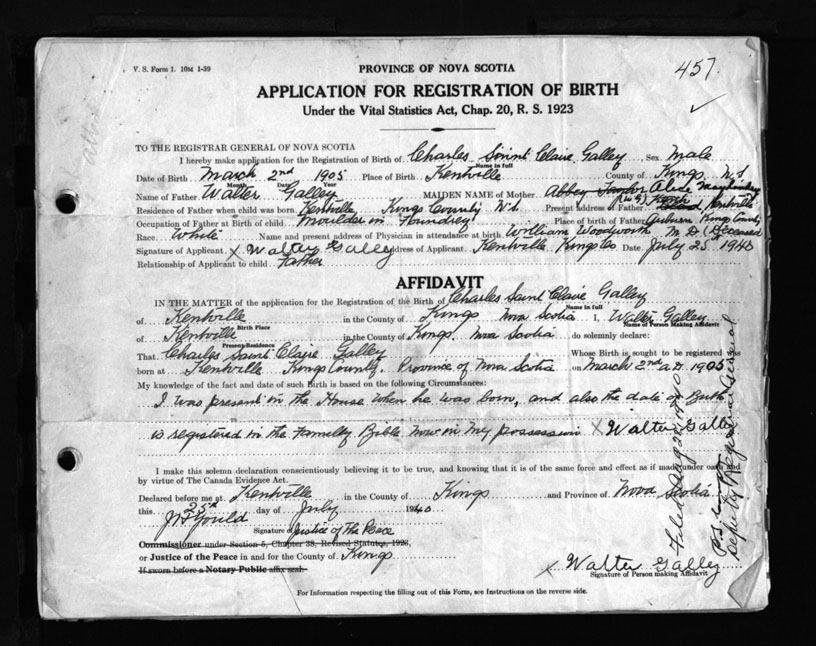 457
V. S. Form 1. 10M 1-39
PROVINCE OF NOVA SCOTIA
APPLICATION FOR REGISTRATION OF BIRTH
Under the Vital Statistics Act, Chap. 20, R. S. 1923
TO THE REGISTRAR GENERAL OF NOVA SCOTIA
I hereby make application for the Registration of Birth of Charles Saint Claire Galley Sex Male
Name in full
Date of Birth March 2nd 1905 Place of Birth Kentville County of Kings N.S
Month Date Year
Name of Father Walter Galley MAIDEN NAME of Mother Abbey
Residence of Father when child was born Kentville Kings County N.S. Present address of Father Kentville
Occupation of Father at Birth of child Moulder in Foundrey Place of birth of Father Auburn Kings County
Race White Name and present address of Physician in attendance at birth William Woodworth M.D. (Deceased
Signature of Applicant x Walter Galley Address of Applicant Kentville Kings Co Date July 25th 1940
Relationship of Applicant to child Father
AFFIDAVIT
IN THE MATTER of the application for the Registration of the Birth of Charles Saint Claire Galley
Name in full
of Kentville in the County of Kings Nova Scotia I, Walter Galley
Birth Place Name of Person Making Affidavit
of Kentville in the County of Kings. Nova Scotia do solemnly declare:
Present Residence
That Charles Saint Claire Galley Whose Birth is sought to be registered was
born at Kentville Kings County. Province of Nova Scotia on March 2nd A.D. 1905
My knowledge of the fact and date of such Birth is based on the following Circumstances:
I was present in the House when he was born, and also the date of Birth
is registered in the Familly Bible now in my possession x Walter Galley
I make this solemn declaration conscientiously believing it to be true, and knowing that it is of the same force and effect as if made under oath and
by virtue of The Canada Evidence Act.
Declared before me at Kentville in the County of Kings and Province of Nova Scotia
this 25th day of July 1940
Gould
Signature of Justice of The Peace
Commissioner under Section 5, Chapter 38, Revised Statutes, 1923,
or Justice of the Peace in and for the County of Kings
If sworn before a Notary Public affix seal.
x Walter Galley
Signature of Person making Affidavit
For Information respecting the filling out of this Form, see Instructions on the reverse side.
Deputy Registrar General